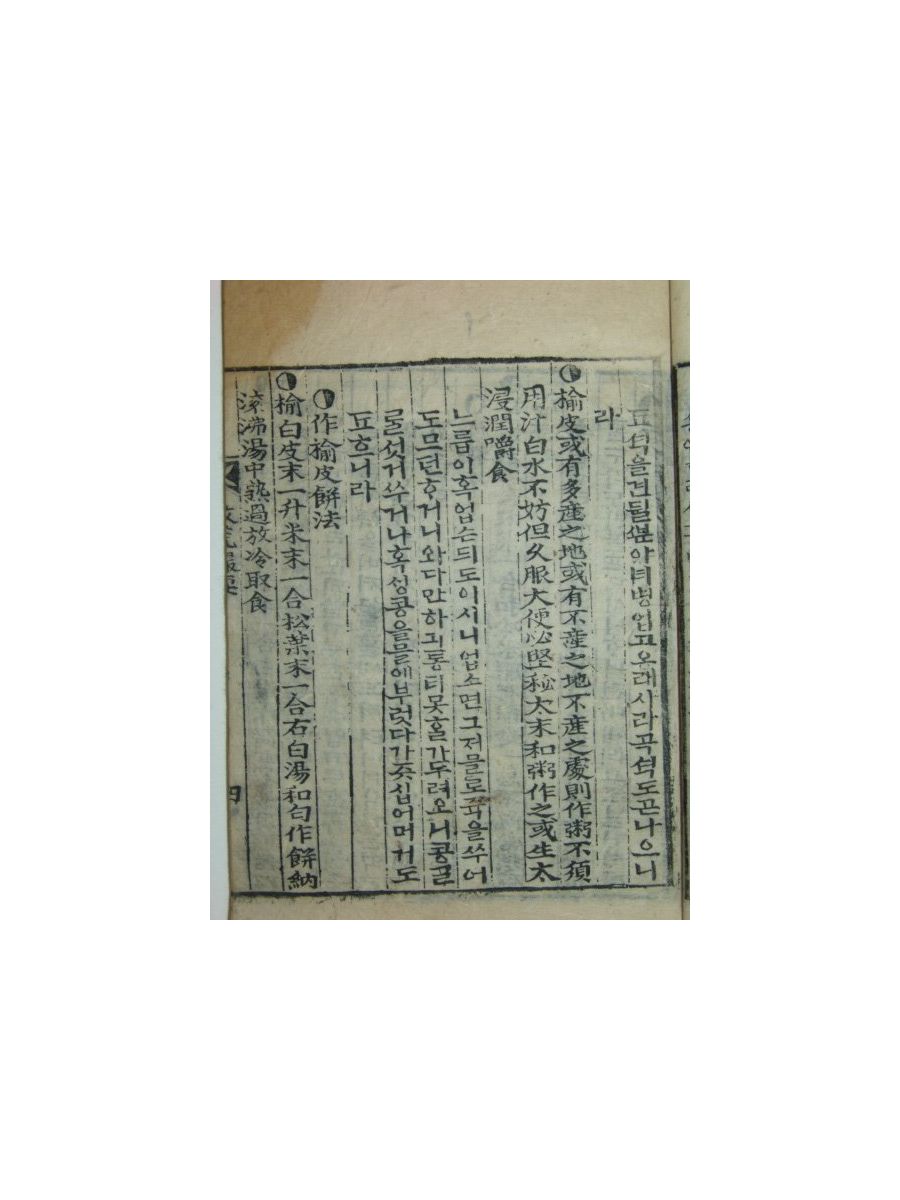 됴셕을견딜ᄲᅮᆫ아녀병업고오래사라곡셕도곤나으니
라
楡皮或有多産之地或有不産之地不産之處則作粥不須
用汁白水不妨但久服大便必堅秘太末和粥作之或生太
浸潤嚼食
느릅이혹업슨ᄃᆡ도이시니업소면그저믈로쥭을쑤어
도므던ᄒᆞ거니와다만하긔통티못ᄒᆞᆯ가두려오니콩ᄀᆞᆯ
ᄅᆞᆯ섯거쑤거나혹ᄉᆡᆼ콩을믈에부럿다가즛십어머거도
됴ᄒᆞ니라
作楡皮餠法
楡白皮末一升米末一合松葉末一合右白湯和匀作餠納
滾沸湯中熟過放冷取食
四